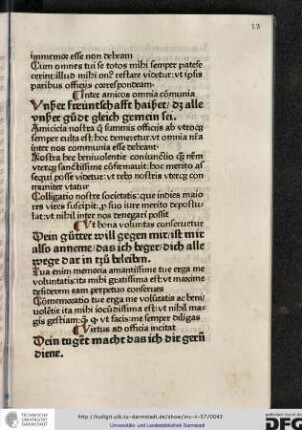 23
immemor esse non debeam
Cum omnes tui se totos mihi semper patefe
cerint: illud mihi onꝰ restare videtur: vt ipsis
paribus officijs correspondeam·
Inter amicos omnia cōmunia
Vnßer freüntschafft haißet/ dz alle
vnßer gůdt gleich gemein sei.
Amicicia nostra ꝙ̄ summis officijs ab vtroqꝫ
semper culta est: hoc temeretur: vt omnia nr̄a
inter nos communia esse debeant·
Nostra hec beniuolentie coniunctio ꝙ̄ rem
vterqꝫ sanctissime cōfirmauit: hoc merito as
sequi posse videtur: vt rebꝰ nostris vterqꝫ com
muniter vtatur
Colligatio nostre societatis: que indies maio
res vires suscipit: ꝓ suo iure merito depostu⸗
tat: vt nihil inter nos denegari possit
Vt bona voluntas conseruetur
Dein gütter will gegen mir/ ist mir
also anneme/ das ich beger/ dich alle
wege dar in tzů beleiben.
Tua enim memoria amantissime tue erga me
voluntatis: ita mihi gratissima est: vt maxime
desiderem eam perpetuo conserues
Cōmemoratio tue erga me volūtatis ac beni/
uolētie ita mihi iocūdissima est: vt nihil ma⸗
gis gestiam: ꝙ̄ ꝙ vt facis: me semper diligas
Virtus ad officia incitat
Dein tugēt macht das ich dir gern
diene.
TECHNISCHE
UNIVERSITÄT
DARMSTADT
http://tudigit.ulb.tu-darmstadt.de/show/inc-ii-57/0043
Universitäts- und Landesbibliothek Darmstadt
DFG